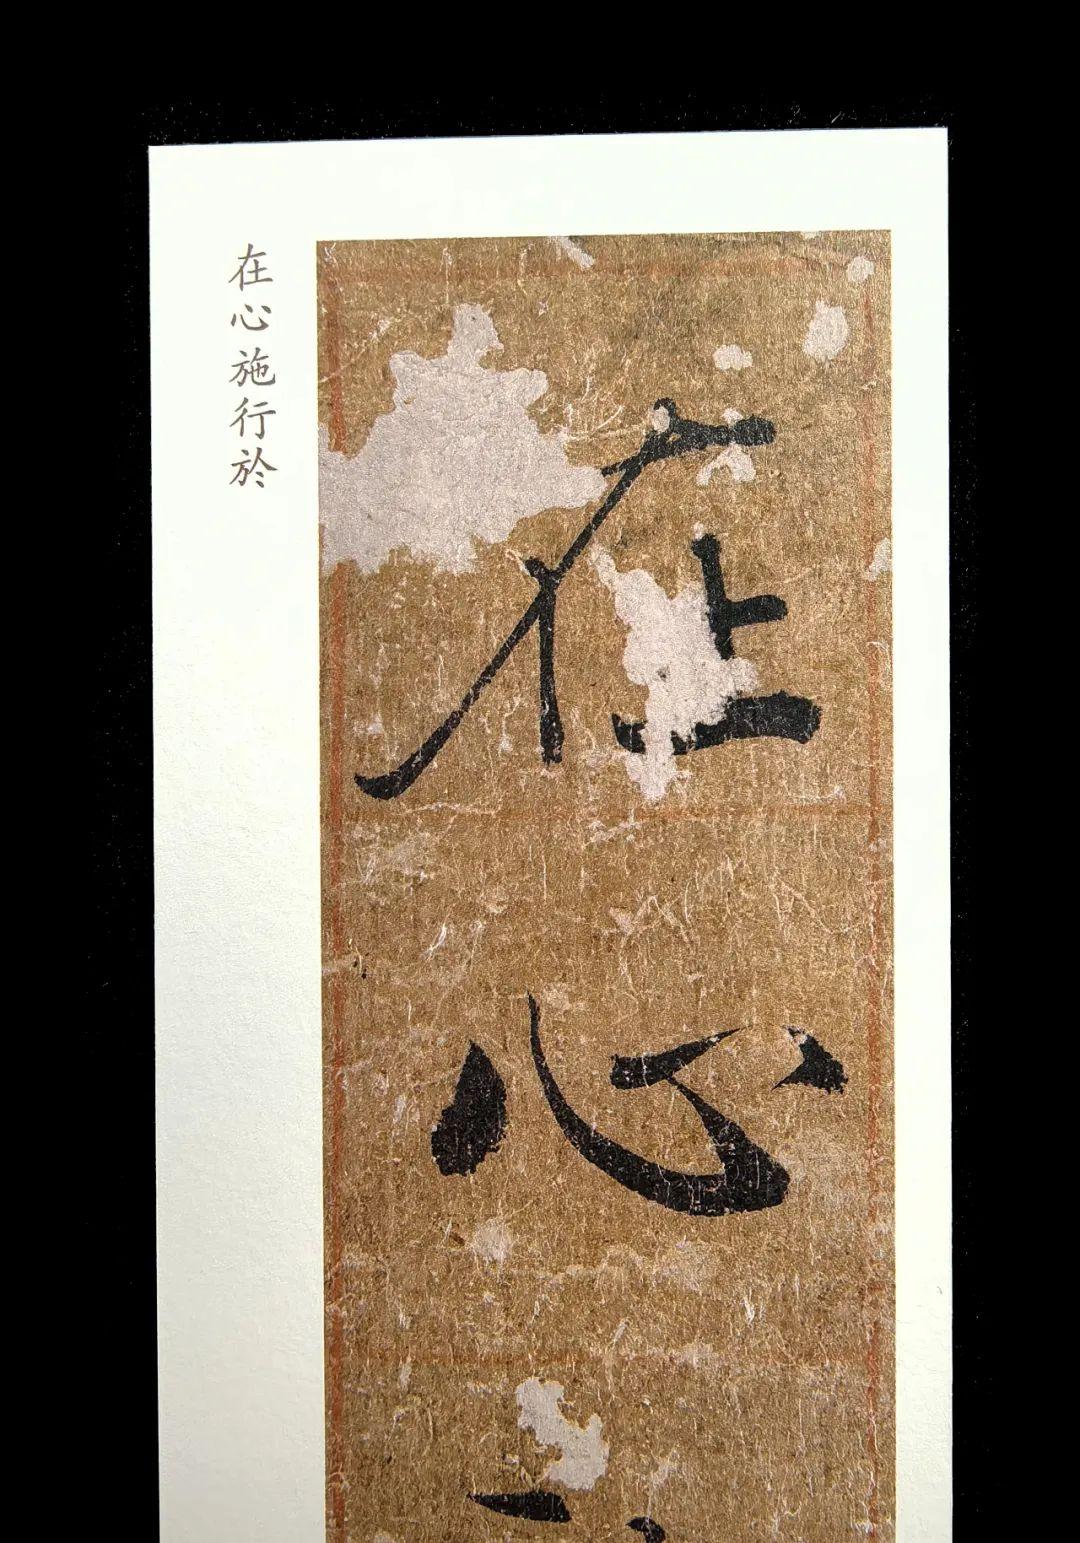 在心
在心施行於